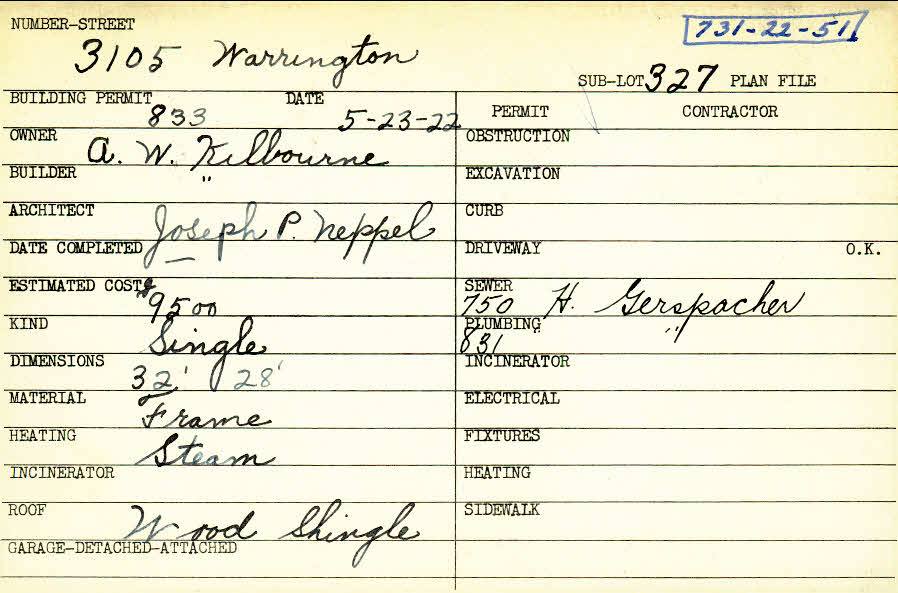 NUMBER-STREET
3105 Warrington
731-22-51
SUB-LOT 327 PLAN FILE
BUILDING PERMIT 833 DATE 5-23-22
PERMIT CONTRACTOR
OWNER A. W. Kilbourne
OBSTRUCTION
BUILDER "
EXCAVATION
ARCHITECT Joseph P. Neppel
CURB
DATE COMPLETED —
DRIVEWAY O.K.
ESTIMATED COST $9500
SEWER 750 H. Gerspacher
KIND Single
PLUMBING 831 "
DIMENSIONS 32' 28'
INCINERATOR
MATERIAL Frame
ELECTRICAL
HEATING Steam
FIXTURES
INCINERATOR
HEATING
ROOF Wood Shingle
SIDEWALK
GARAGE-DETACHED-ATTACHED